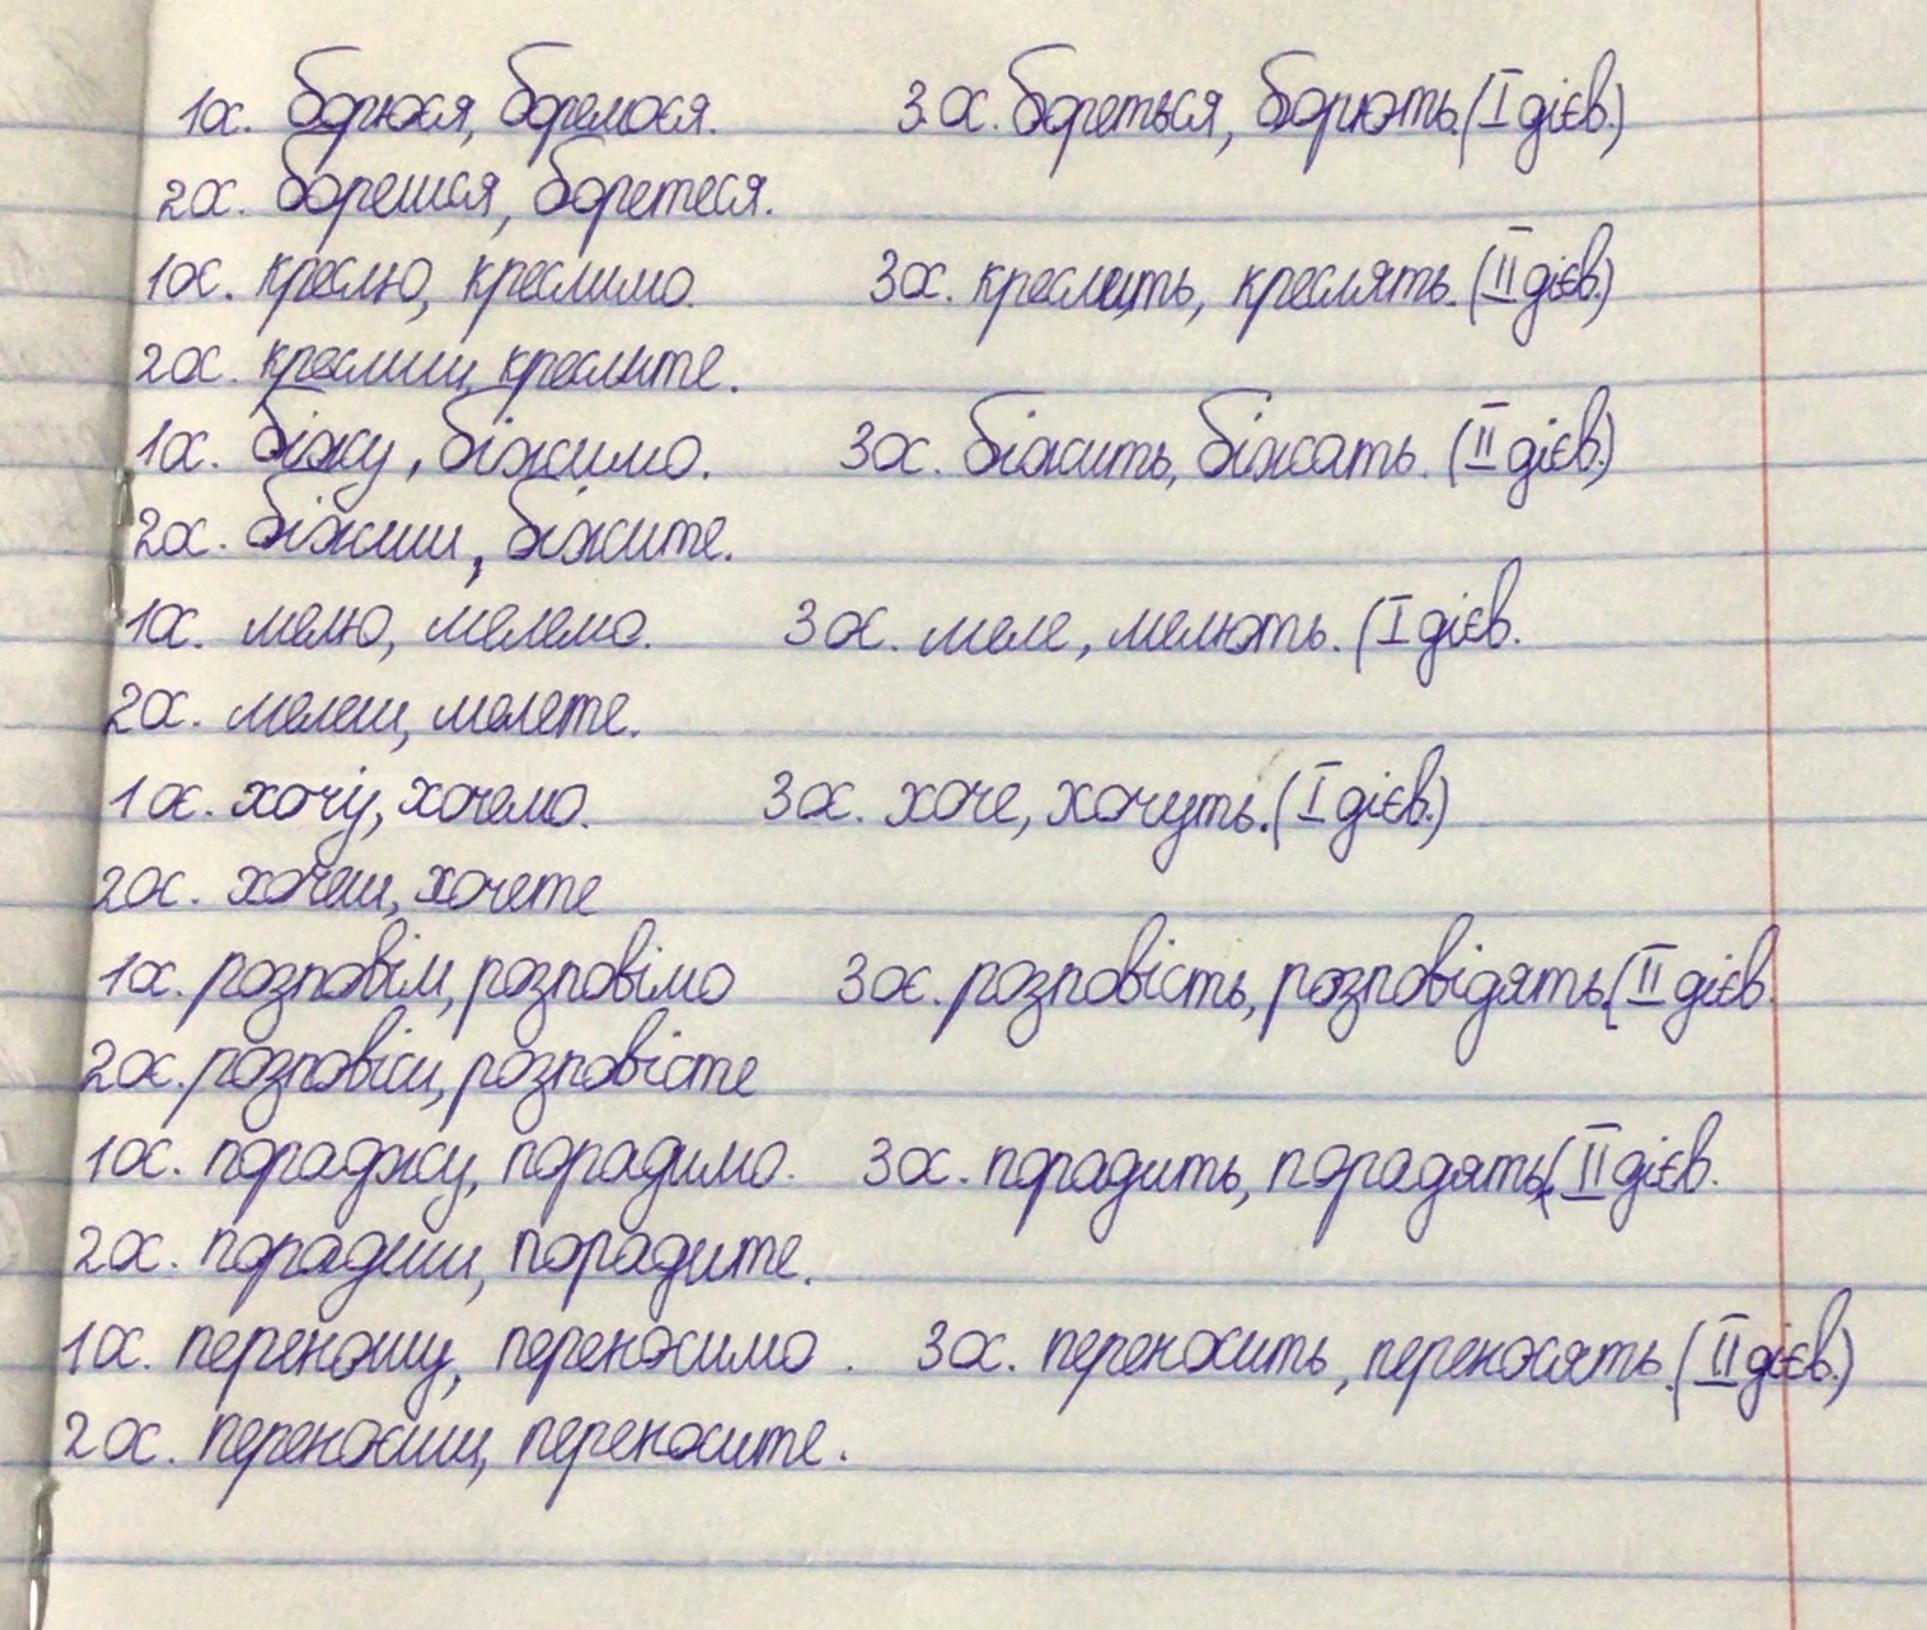 1ос. борюся, боремося. 3.ос. бореться, борють. (I дієв.)
2ос. борешся, боретеся.
1ос. креслю, креслимо. 3ос. креслить, креслять. (II дієв.)
2ос. креслиш, креслите.
1ос. біжу, біжимо. 3ос. біжить, біжать. (II дієв.)
2ос. біжиш, біжите.
1ос. мелю, мелемо. 3ос. меле, мелють. (I дієв.
2ос. мелеш, мелете.
1ос. хочу, хочемо. 3ос. хоче, хочуть. (I дієв.)
2ос. хочеш, хочете
1ос. розповім, розповімо 3ос. розповість, розповідять. (II дієв.
2ос. розповіси, розповісте
1ос. пораджу, порадимо. 3ос. порадить, порадять. (II дієв.
2ос. порадиш, порадите.
1ос. переношу, переносимо. 3ос. переносить, переносять. (II дієв.)
2ос. переносиш, переносите.